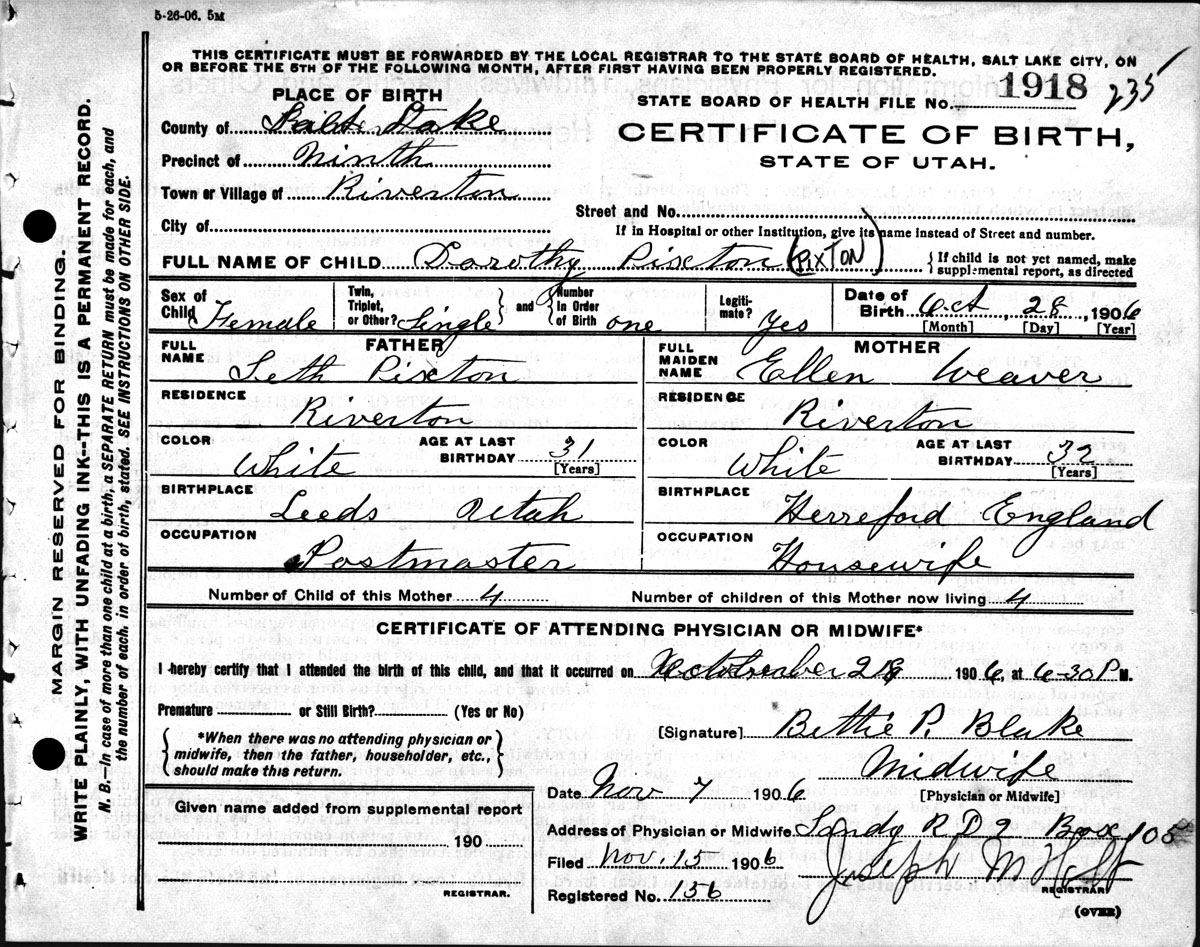 5-26-06. 5M
THIS CERTIFICATE MUST BE FORWARDED BY THE LOCAL REGISTRAR TO THE STATE BOARD OF HEALTH, SALT LAKE CITY, ON
OR BEFORE THE 5TH OF THE FOLLOWING MONTH, AFTER FIRST HAVING BEEN PROPERLY REGISTERED.
PLACE OF BIRTH
STATE BOARD OF HEALTH FILE No. 1918 235
County of Salt Lake
CERTIFICATE OF BIRTH,
STATE OF UTAH.
Precinct of Ninth
Town or Village of Riverton
Street and No.
City of
If in Hospital or other Institution, give its name instead of Street and number.
FULL NAME OF CHILD Dorothy Pixton (PIXTON) { If child is not yet named, make supplemental report, as directed
Sex of Child Female Twin, Triplet, or Other? Single } and { Number In Order of Birth one Legiti- mate? Yes Date of Birth Oct, 28, 1906
[Month] [Day] [Year]
FATHER MOTHER
FULL NAME Seth Pixton FULL MAIDEN NAME Ellen Weaver
RESIDENCE Riverton RESIDENCE Riverton
COLOR White AGE AT LAST BIRTHDAY 31 [Years] COLOR White AGE AT LAST BIRTHDAY 32 [Years]
BIRTHPLACE Leeds Utah BIRTHPLACE Herreford England
OCCUPATION Postmaster OCCUPATION Housewife
Number of Child of this Mother 4 Number of children of this Mother now living 4
CERTIFICATE OF ATTENDING PHYSICIAN OR MIDWIFE*
I hereby certify that I attended the birth of this child, and that it occurred on October 28 1906, at 6-30 P M.
Premature or Still Birth? (Yes or No)
*When there was no attending physician or
midwife, then the father, householder, etc.,
should make this return.
[Signature] Bettie P. Blake
Midwife
[Physician or Midwife]
Date Nov 7 1906
Given name added from supplemental report
190
REGISTRAR.
Address of Physician or Midwife Sandy R D 2 Box 105
Filed Nov. 15 1906 Joseph M Holt
REGISTRAR
Registered No. 136
(OVER)
MARGIN RESERVED FOR BINDING.
WRITE PLAINLY, WITH UNFADING INK—THIS IS A PERMANENT RECORD.
N. B.—In case of more than one child at a birth, a SEPARATE RETURN must be made for each, and
the number of each, in order of birth, stated. SEE INSTRUCTIONS ON OTHER SIDE.